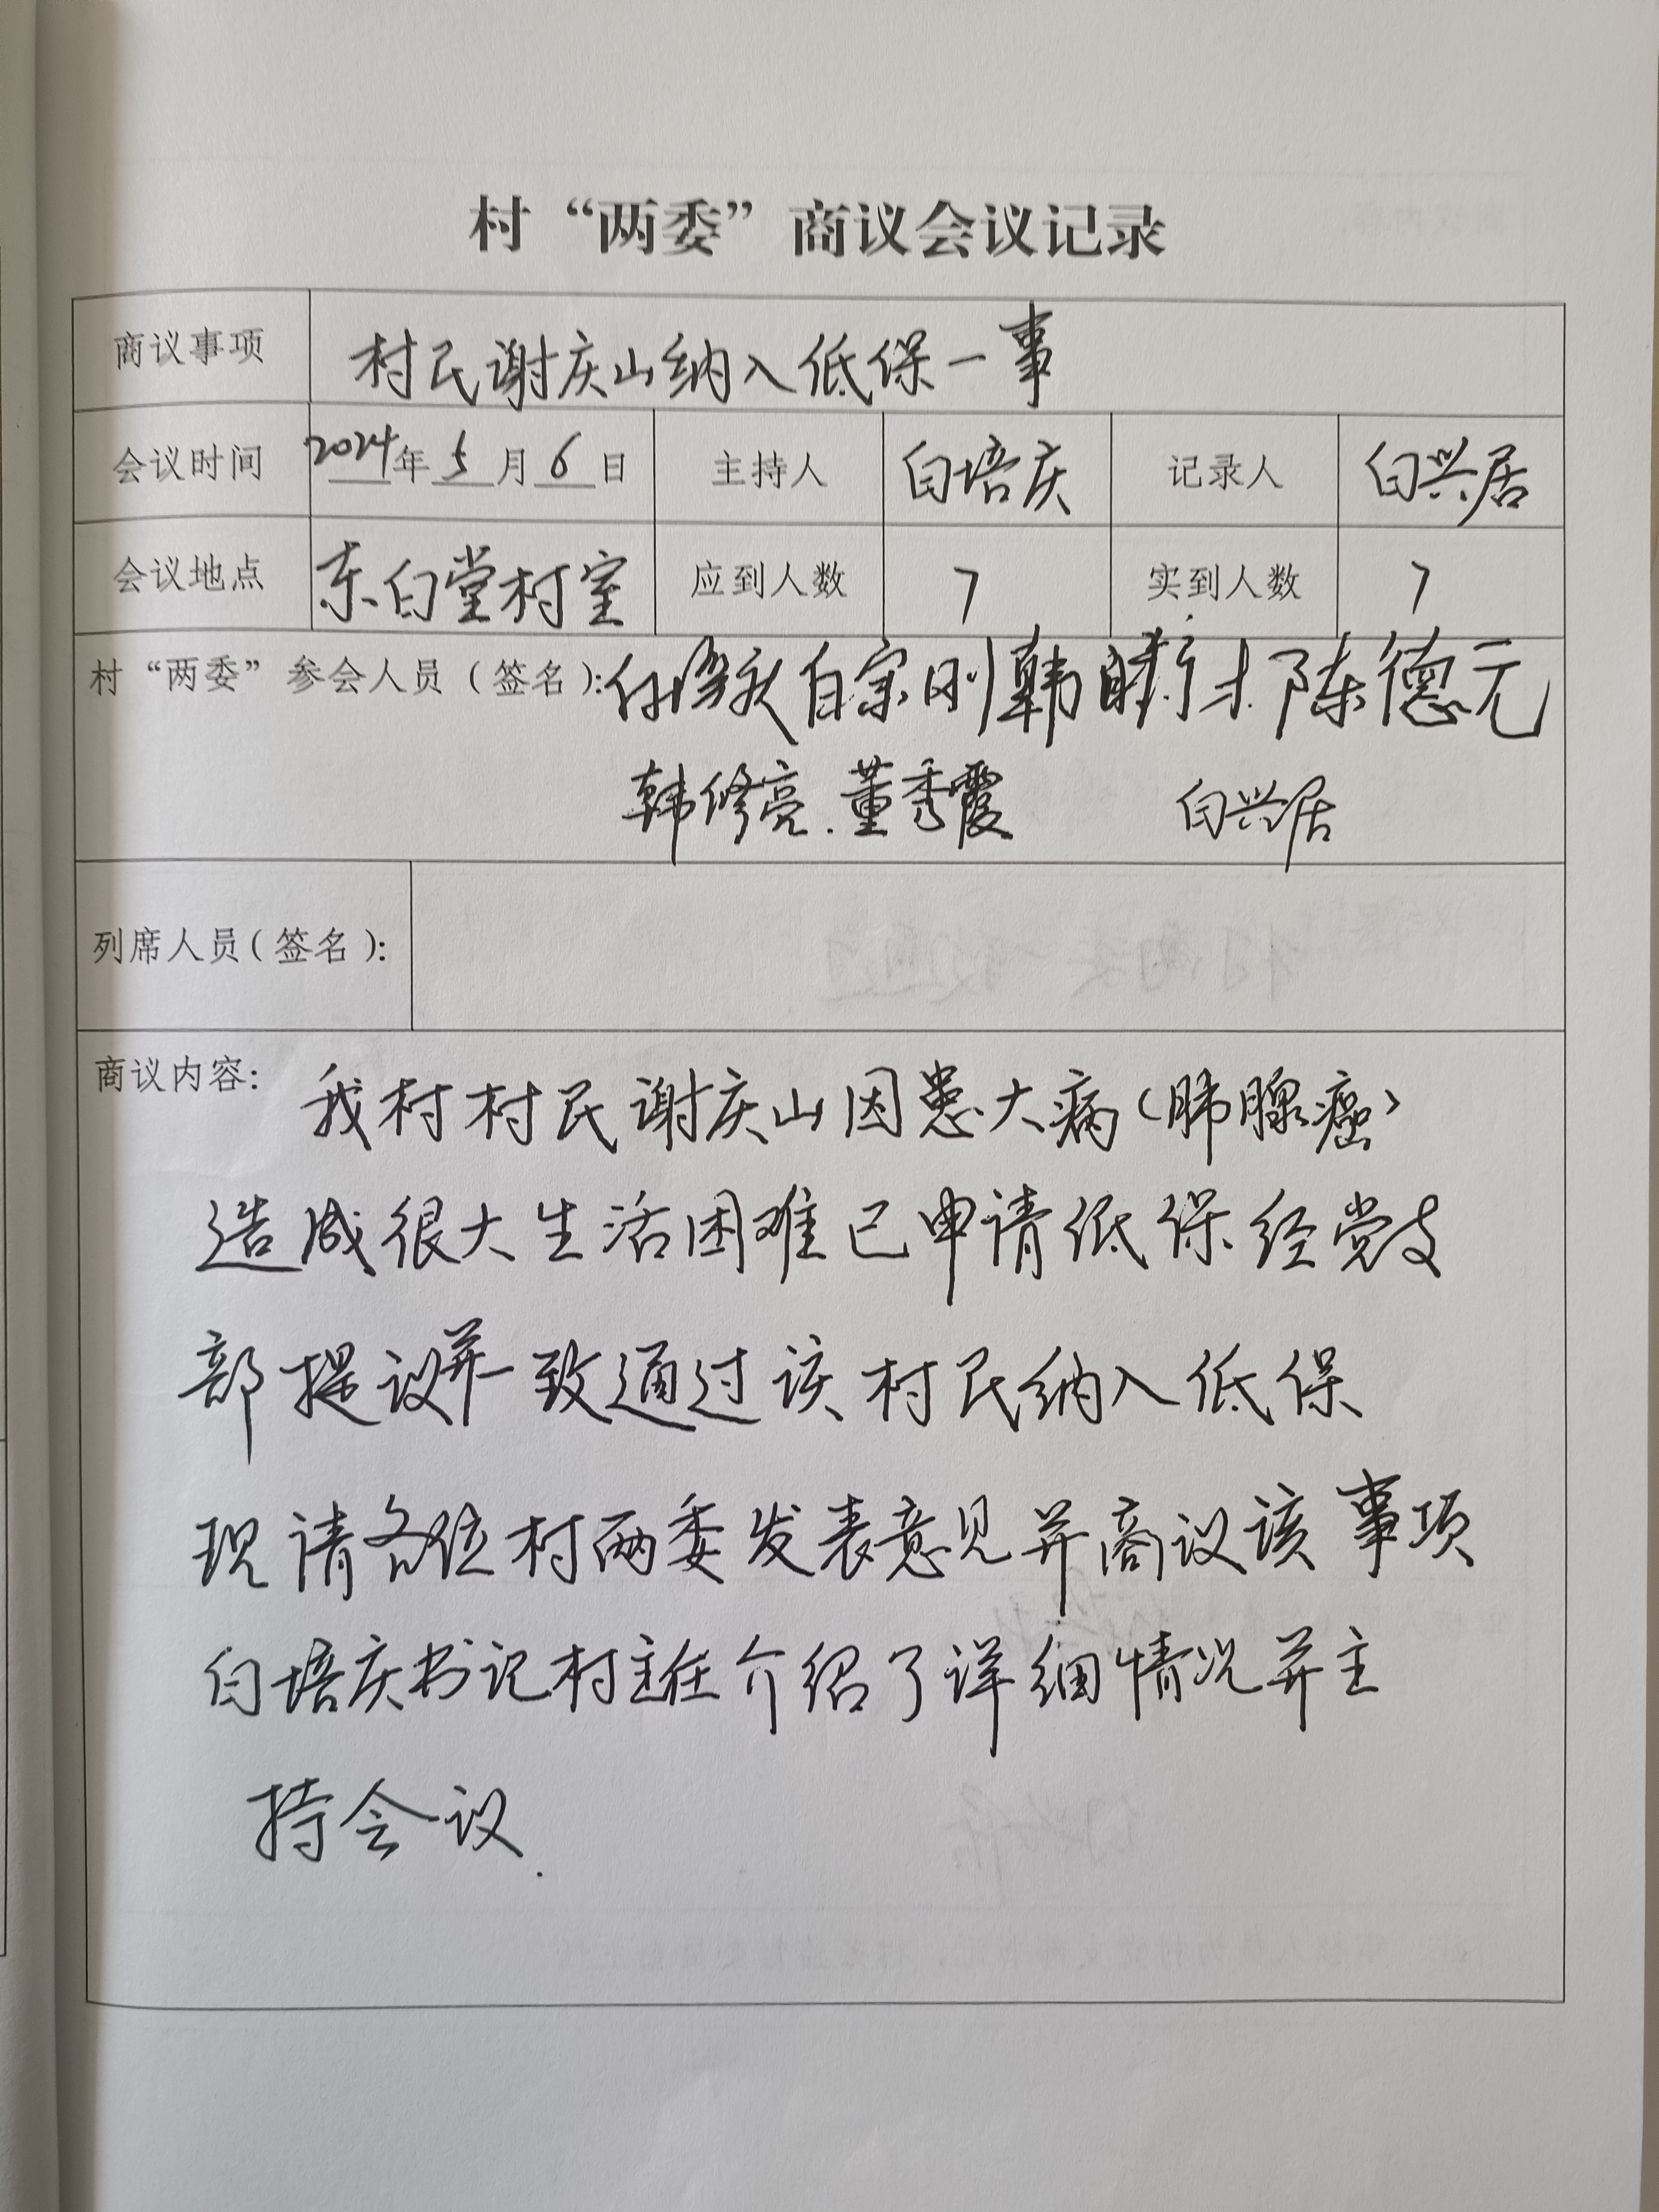 村“两委”商议会议记录
商议事项 村民谢庆山纳入低保一事
会议时间 2024年5月6日 主持人 白培庆 记录人 白兴居
会议地点 东白堂村室 应到人数 7 实到人数 7
村“两委”参会人员(签名): 白宗刚 韩 陈德元
韩修亮.董秀霞 白兴居
列席人员(签名):
商议内容: 我村村民谢庆山因患大病(肺腺癌)
造成很大生活困难已申请低保经党支
部提议并一致通过该村民纳入低保
现请各位村两委发表意见并商议该事项
白培庆书记村主任介绍了详细情况并主
持会议.